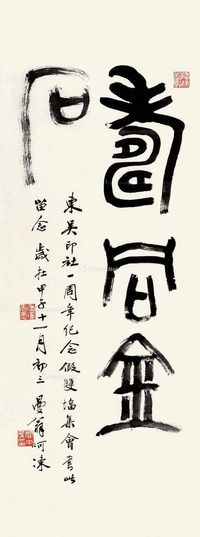 壽同金
石
東吳印社一周年紀念假雙塔集會書此
留念 歲在甲子十一月初三 曼翁呵凍